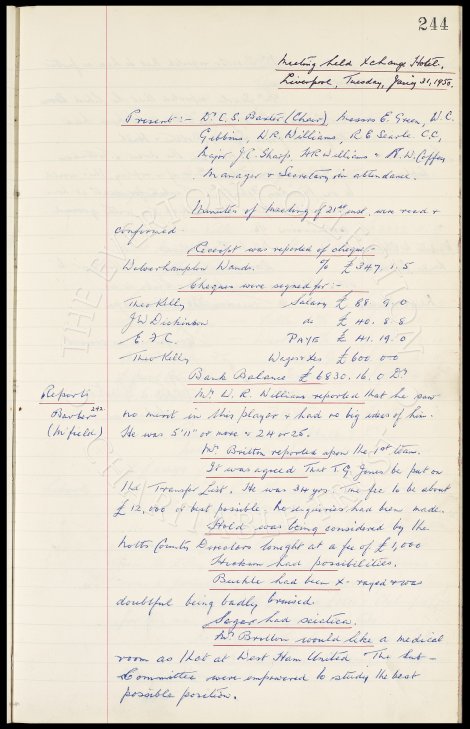 244
Meeting held Xchange Hotel,
Liverpool, Tuesday, Jany 31, 1950.
Present :- Dr. C. S. Baxter (Chair) Messrs E. Green, W. C.
Gibbins, W. R. Williams, R. E. Searle C.C,
Major J. C. Sharp, H R Williams & N. W. Coffey
Manager & Secretary in attendance.
Minutes of meeting of 21st inst, were read &
confirmed
Receipt was reported of cheque:-
Wolverhampton Wands. % £ 347. 1. 5
Cheques were signed for :-
Theo Kelly Salary £ 88. 9. 0
J W Dickinson do £ 40. 8. 8
E. F. C. PAYE £ 41. 19. 0
Theo Kelly Wages & £ 600. 0. 0
Bank Balance £ 6830. 16. 0 Dr
Reports
Barber 242.
(M'field)
Mr W. R. Williams reported that he saw
no merit in this player & had no big ideas of him.
He was 5'11" or more & 24 or 25.
Mr Britton reported upon the 1st team.
It was agreed That T. G. Jones be put on
the Transfer List. He was 34 yrs. The fee to be about
£ 12,000 or best possible; no enquiries had been made.
Hold was being considered by the
Notts County Directors tonight at a fee of £ 1,000
Hickson had possibilities.
Buckle had been X - rayed & was
doubtful being badly bruised.
Sagar had sciatica.
Mr Britton would like a medical
room as that at West Ham United The Sub-
Committee were empowered to study the best
possible position.
THE EVERTON COLLECTION